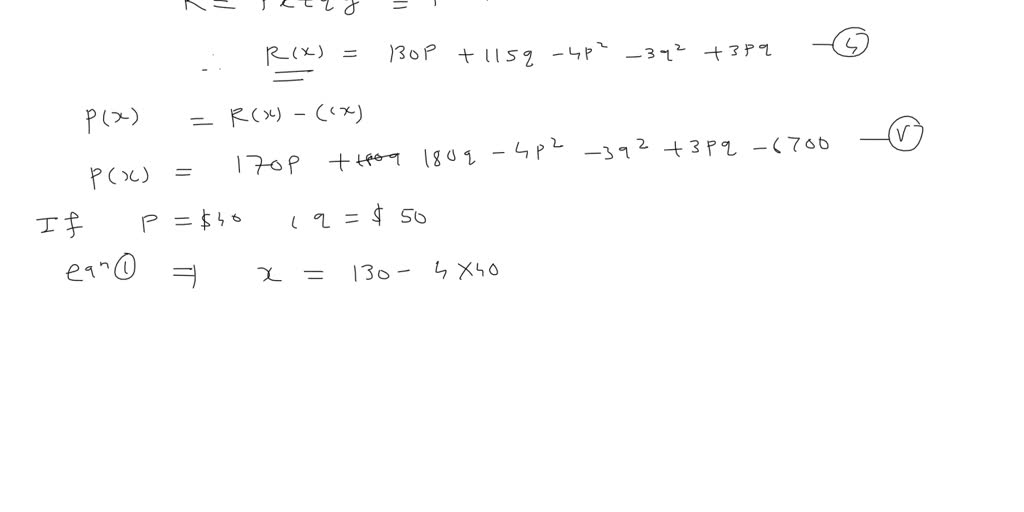 ∴ R(x) = 130P + 115q - 4p² - 3q² + 3pq — 4
P(x) = R(x) - C(x)
P(x) = 170P + 180q - 4p² - 3q² + 3pq - 6700 — V
If P = $40 , q = $ 50
eqⁿ ① ⇒ x = 130 - 4 × 40